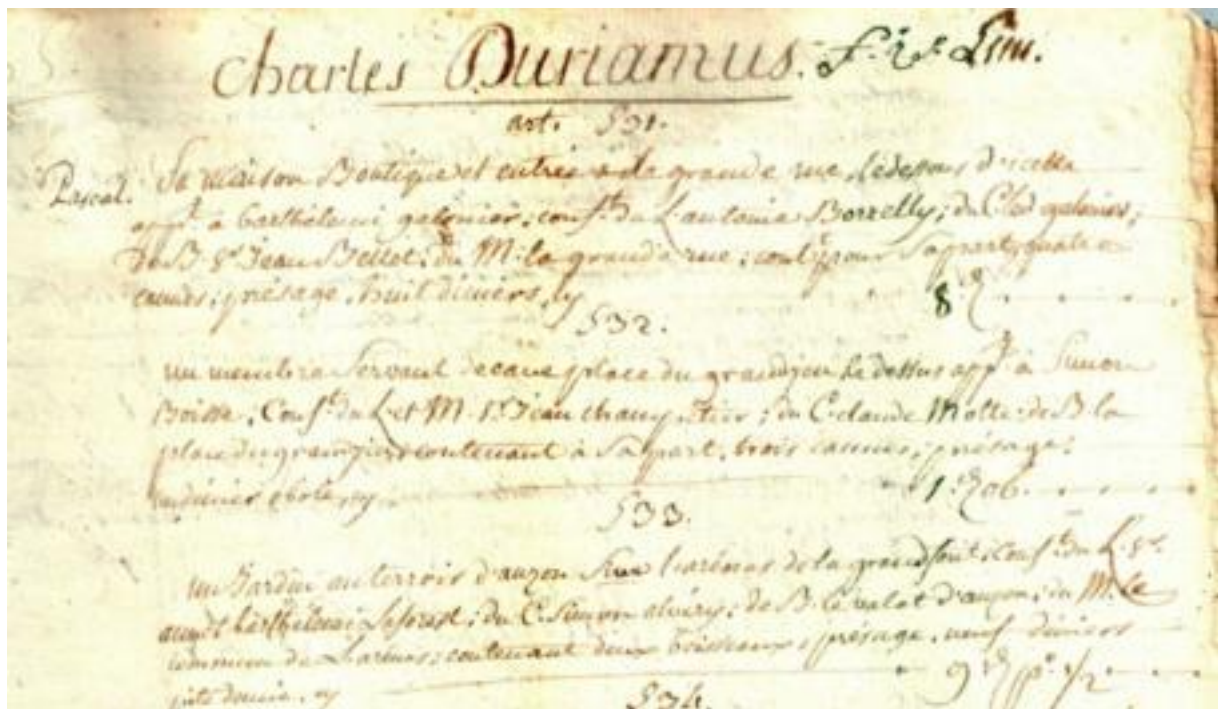 Charles Duriamus.
art. 531.
Pascal. Sa Maison Boutique et entrée a la grande rue, le dessous d'icelle
app.t à barthelemi galonier, conf.t du L. antoine Borrelly; du C. led. galonier;
de B. s.r Jean Bellet; du M. la grande rue; cont.t pour sa part, quatre
cannes; présage, huit deniers, cy 8
532.
un membre servant de cave place du grand jeu le dessus app.t à Simon
Boisse, Conf.t du L. et M. s.r Jean ; du C. claude Motte; de B. la
place du grand jeu contenant à sa part, trois cannes; présage;
un denier obole, cy 1 d. 06.
533.
un Jardin au terroir d'auzon de la ; Conf.t du L. s.r
barthelemi Laforest; du C. Simon ; de B. le valat d'auzon; du M. le
commun de ; contenant deux boisseaux; présage, neuf deniers
pite demie, cy 9 d. p.e 1/2
534.